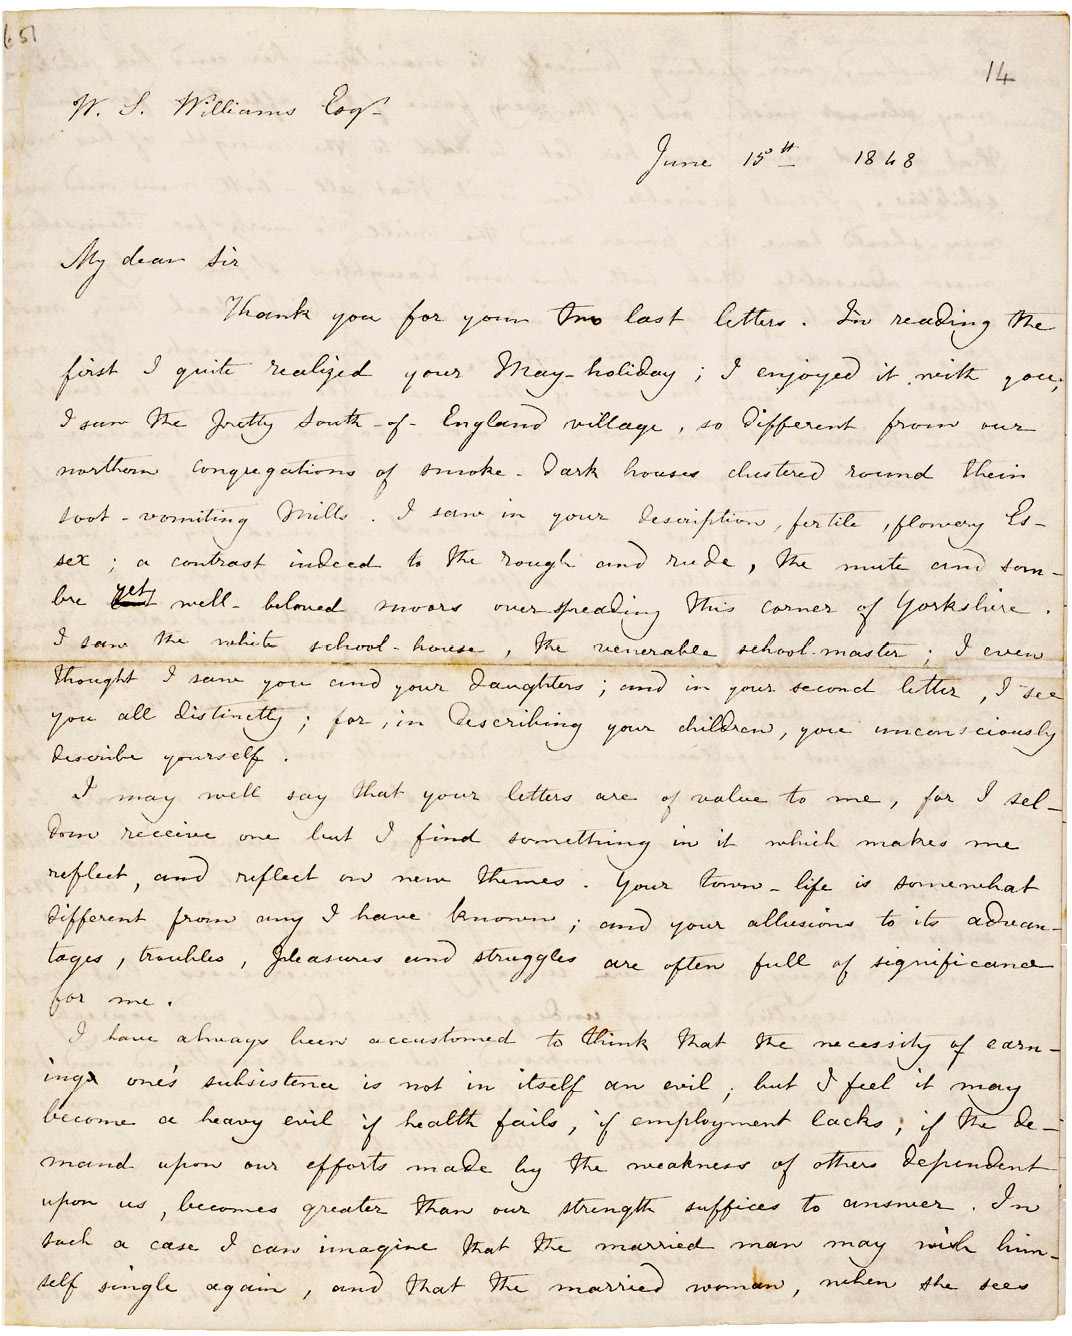 651
14
W. S. Williams Esqr
June 15th 1848
My dear Sir
Thank you for your two last letters. In reading the
first I quite realized your May-holiday; I enjoyed it with you;
I saw the pretty South-of-England village, so different from our
northern congregations of smoke-dark houses clustered round their
soot-vomiting Mills. I saw in your description, fertile, flowery Es-
sex; a contrast indeed to the rough and rude, the mute and som-
bre yet well-beloved moors over-spreading this corner of Yorkshire.
I saw the white school-house, the venerable school-master; I even
thought I saw you and your daughters; and in your second letter, I see
you all distinctly; for, in describing your children, you unconsciously
describe yourself.
I may well say that your letters are of value to me, for I sel-
dom receive one but I find something in it which makes me
reflect, and reflect on new themes. Your town-life is somewhat
different from any I have known; and your allusions to its advan-
tages, troubles, pleasures and struggles are often full of significance
for me.
I have always been accustomed to think that the necessity of earn-
ing one's subsistence is not in itself an evil; but I feel it may
become a heavy evil if health fails, if employment lacks; if the de-
mand upon our efforts made by the weakness of others dependent
upon us, becomes greater than our strength suffices to answer. In
such a case I can imagine that the married man may wish him-
self single again, and that the married woman, when she sees